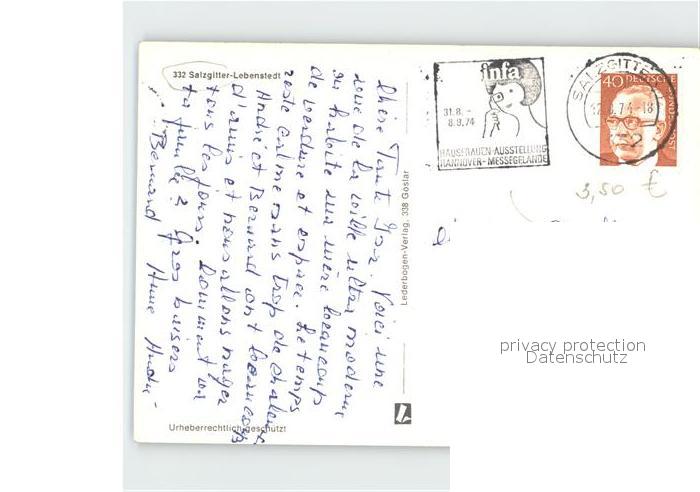 332 Salzgitter-Lebenstedt
Chère Tante Voici une
vue de la ville ultra moderne
où habite ma mère beaucoup
de verdure et espace. Le temps
reste calme sans trop de chaleur
André et Bernard ont beaucoup
d'amis et nous allons nager
tous les jours. Comment va
ta famille? Gros baisers
Bernard Anne
Urheberrechtlich geschützt
Lederbogen-Verlag, 338 Goslar
infa
31.8. -
8.9.74
HAUSFRAUEN-AUSSTELLUNG
HANNOVER-MESSEGELÄNDE
SALZGITTER
74-18
2
40 DEUTSCHE
3,50 €
privacy protection
Datenschutz